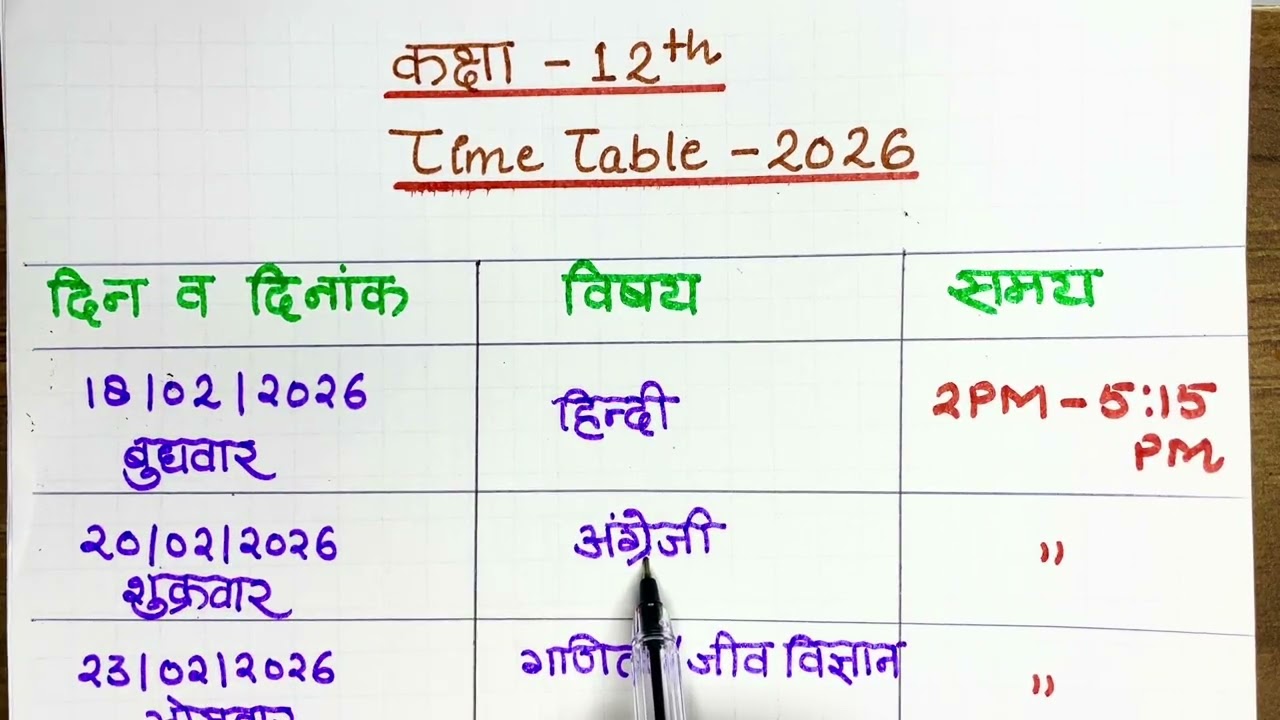 कक्षा - 12th
Time Table - 2026
दिन व दिनांक विषय समय
18/02/2026 हिन्दी 2PM - 5:15 PM
बुधवार
20/02/2026 अंग्रेजी "
शुक्रवार
23/02/2026 गणित / जीव विज्ञान "
सोमवार